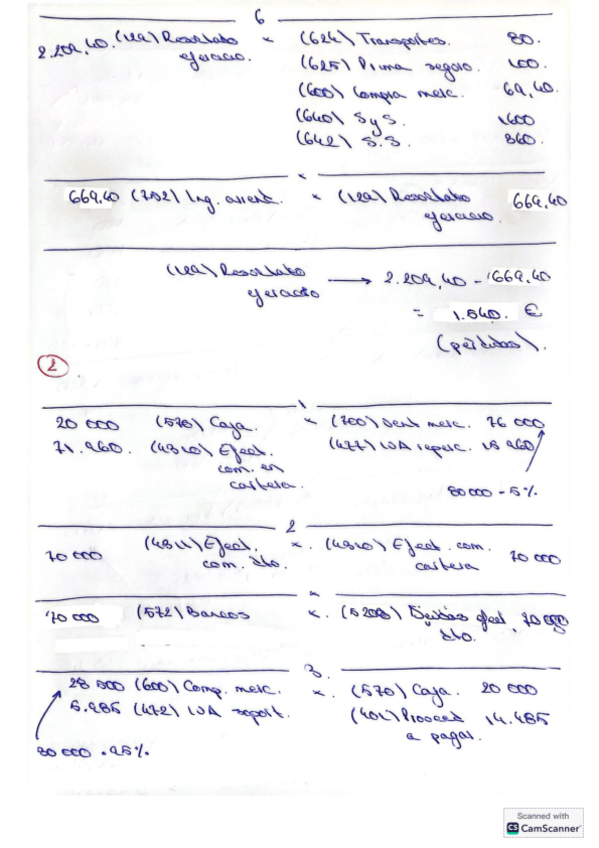 6
2.209,40. (129) Resultado × (624) Transportes. 80.
ejercicio. (625) Prima seguro. 100.
(600) Compra merc. 69,40.
(640) SyS. 1600
(642) S.S. 360.
×
669.40 (752) Ing. arrend. × (129) Resultado 669,40
ejercicio.
(129) Resultado → 2.209,40 - 669,40
ejercicio
= 1.540. €
(pérdidas).
2
1
20 000 (570) Caja. × (700) Vent merc. 76 000
71.960. (4310) Efect. (477) IVA reperc. 15 960
com. en
cartera.
80 000 - 5%
2
70 000 (4311) Efect. ×. (4310) Efect. com. 70 000
com. dto. cartera
×
70 000 (572) Bancos ×. (5208) Deudas efect. 70 000
dto.
3.
28 500 (600) Comp. merc. ×. (570) Caja. 20 000
5.985 (472) IVA soport. (401) Proveed 14.485
a pagar.
Scanned with
CS CamScanner